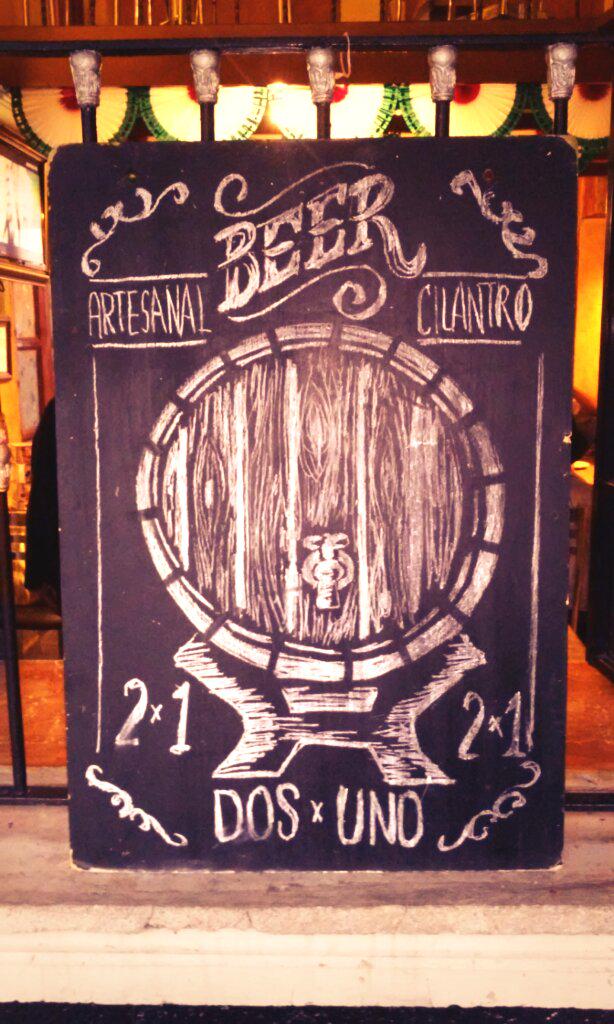 BEER
ARTESANAL CILANTRO
2x1 2x1
DOS x UNO